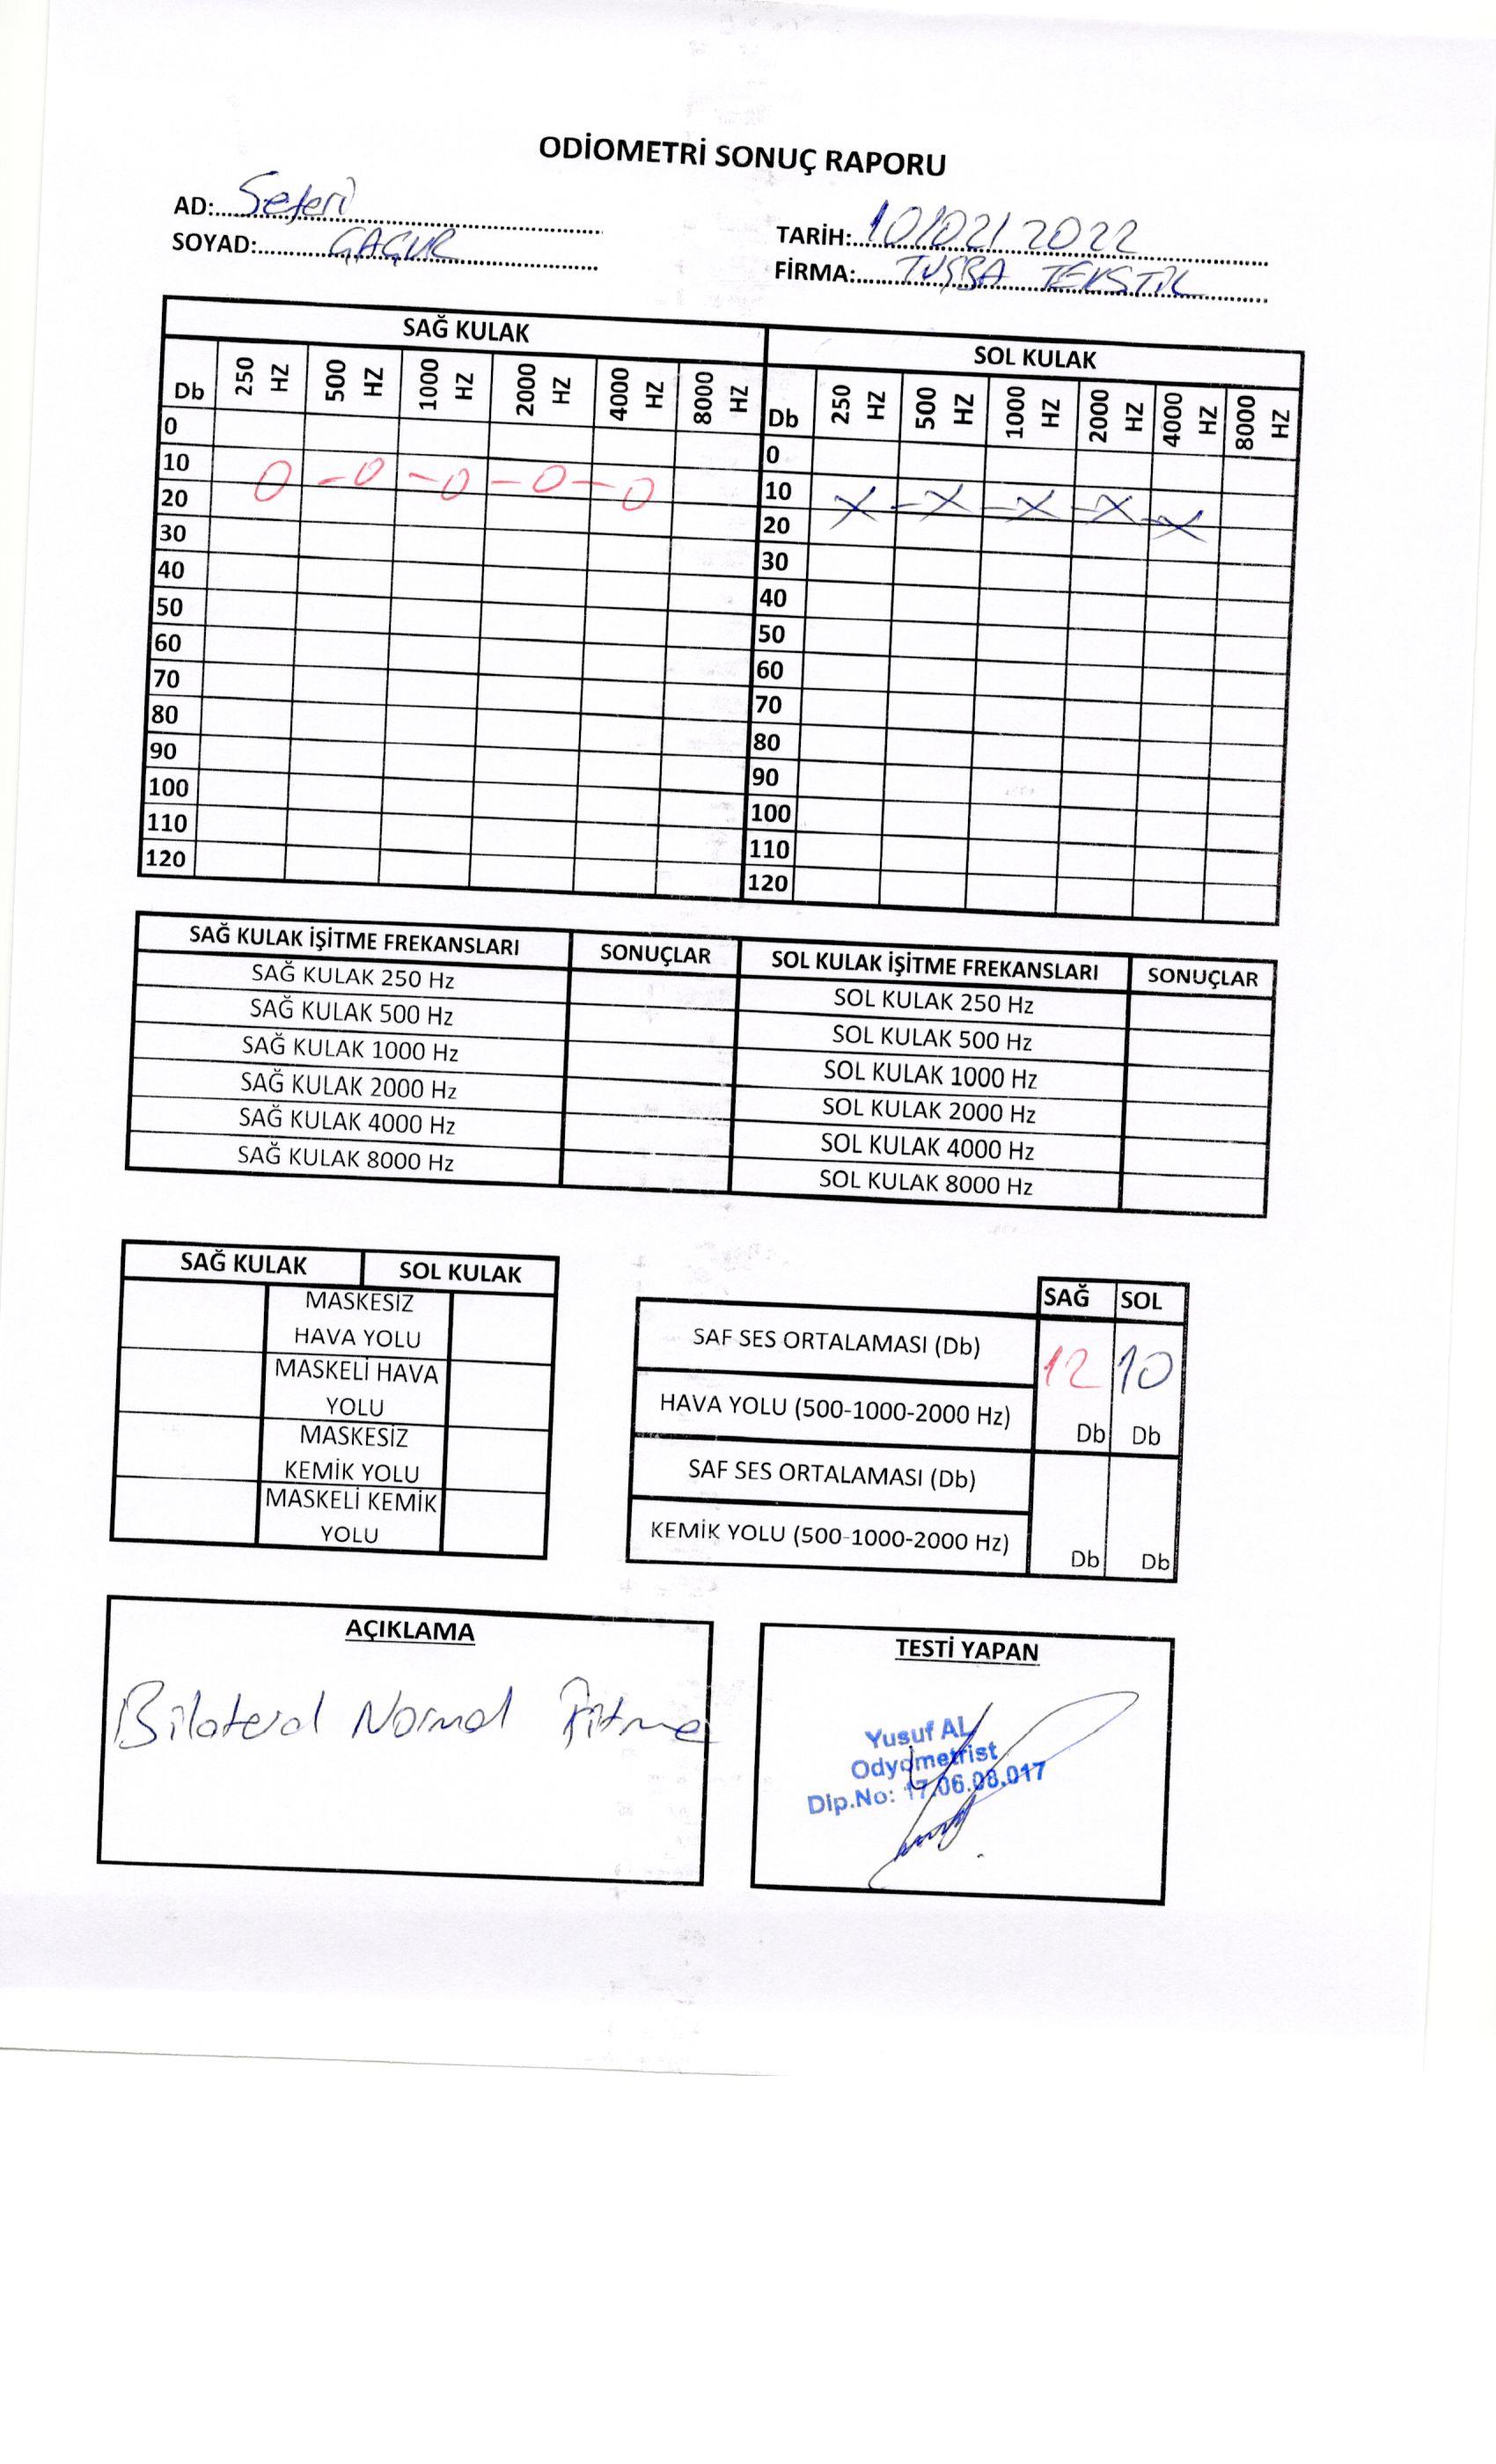 ODİOMETRİ SONUÇ RAPORU
AD: Seferi
SOYAD: ÇAÇUR
TARİH: 10/02/2022
FİRMA: TUŞBA TEKSTİL
SAĞ KULAK SOL KULAK
Db 250 HZ 500 HZ 1000 HZ 2000 HZ 4000 HZ 8000 HZ Db 250 HZ 500 HZ 1000 HZ 2000 HZ 4000 HZ 8000 HZ
0 0
10 0 - 0 - 0 - 0 - 0 10 X - X - X - X - X
20 20
30 30
40 40
50 50
60 60
70 70
80 80
90 90
100 100
110 110
120 120
SAĞ KULAK İŞİTME FREKANSLARI SONUÇLAR SOL KULAK İŞİTME FREKANSLARI SONUÇLAR
SAĞ KULAK 250 Hz SOL KULAK 250 Hz
SAĞ KULAK 500 Hz SOL KULAK 500 Hz
SAĞ KULAK 1000 Hz SOL KULAK 1000 Hz
SAĞ KULAK 2000 Hz SOL KULAK 2000 Hz
SAĞ KULAK 4000 Hz SOL KULAK 4000 Hz
SAĞ KULAK 8000 Hz SOL KULAK 8000 Hz
SAĞ KULAK SOL KULAK
MASKESİZ
HAVA YOLU
MASKELİ HAVA
YOLU
MASKESİZ
KEMİK YOLU
MASKELİ KEMİK
YOLU
SAĞ SOL
SAF SES ORTALAMASI (Db) 12 10
HAVA YOLU (500-1000-2000 Hz) Db Db
SAF SES ORTALAMASI (Db)
KEMİK YOLU (500-1000-2000 Hz) Db Db
AÇIKLAMA
Bilateral Normal İşitme
TESTİ YAPAN
Yusuf AL
Odyometrist
Dip.No: 17.06.08.017